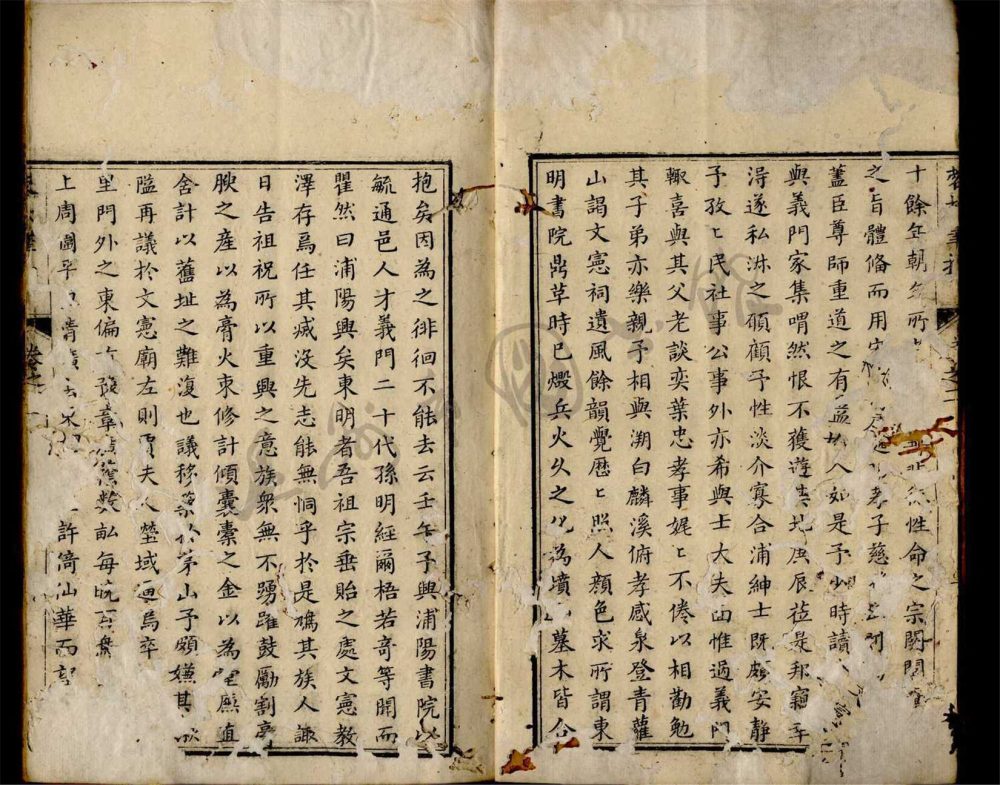 十餘年朝
性命之宗關閩
之旨體備而用
子慈
藎臣尊師重道之有益於人如是予少時讀
與義門家集喟然恨不獲遊其地庚辰蒞是邦竊幸
淂遂私淋之碩顧予性淡介寡合浦紳士既頗安靜
予孜〻民社事公事外亦希與士大夫面惟過義門
輙喜與其父老談奕葉忠孝事娓〻不倦以相勸勉
其子弟亦樂親予相與溯白麟溪俯孝感泉登青蘿
山謁文憲祠遺風餘韻覺歷〻照人顏色求所謂東
明書院鼎草時已燬兵火久之化為墳墓木皆合
抱矣因為之徘徊不能去云壬午予興浦陽書院以
毓通邑人才義門二十代孫明經爾梧若竒等聞而
瞿然曰浦陽興矣東明者吾祖宗垂貽之處文憲教
澤存焉任其㓕沒先志能無恫乎於是鳩其族人諏
日告祖祝所以重興之意族衆無不踴躍鼓勵割亭
腴之產以為膏火束修計傾囊橐之金以為
舍計以舊址之難復也議移築於茅山予頗嫌其
隘再議於文憲廟左則賈夫人塋域逼焉卒
里門外之東偏
數畝每
上周圖平
許漪汕華而